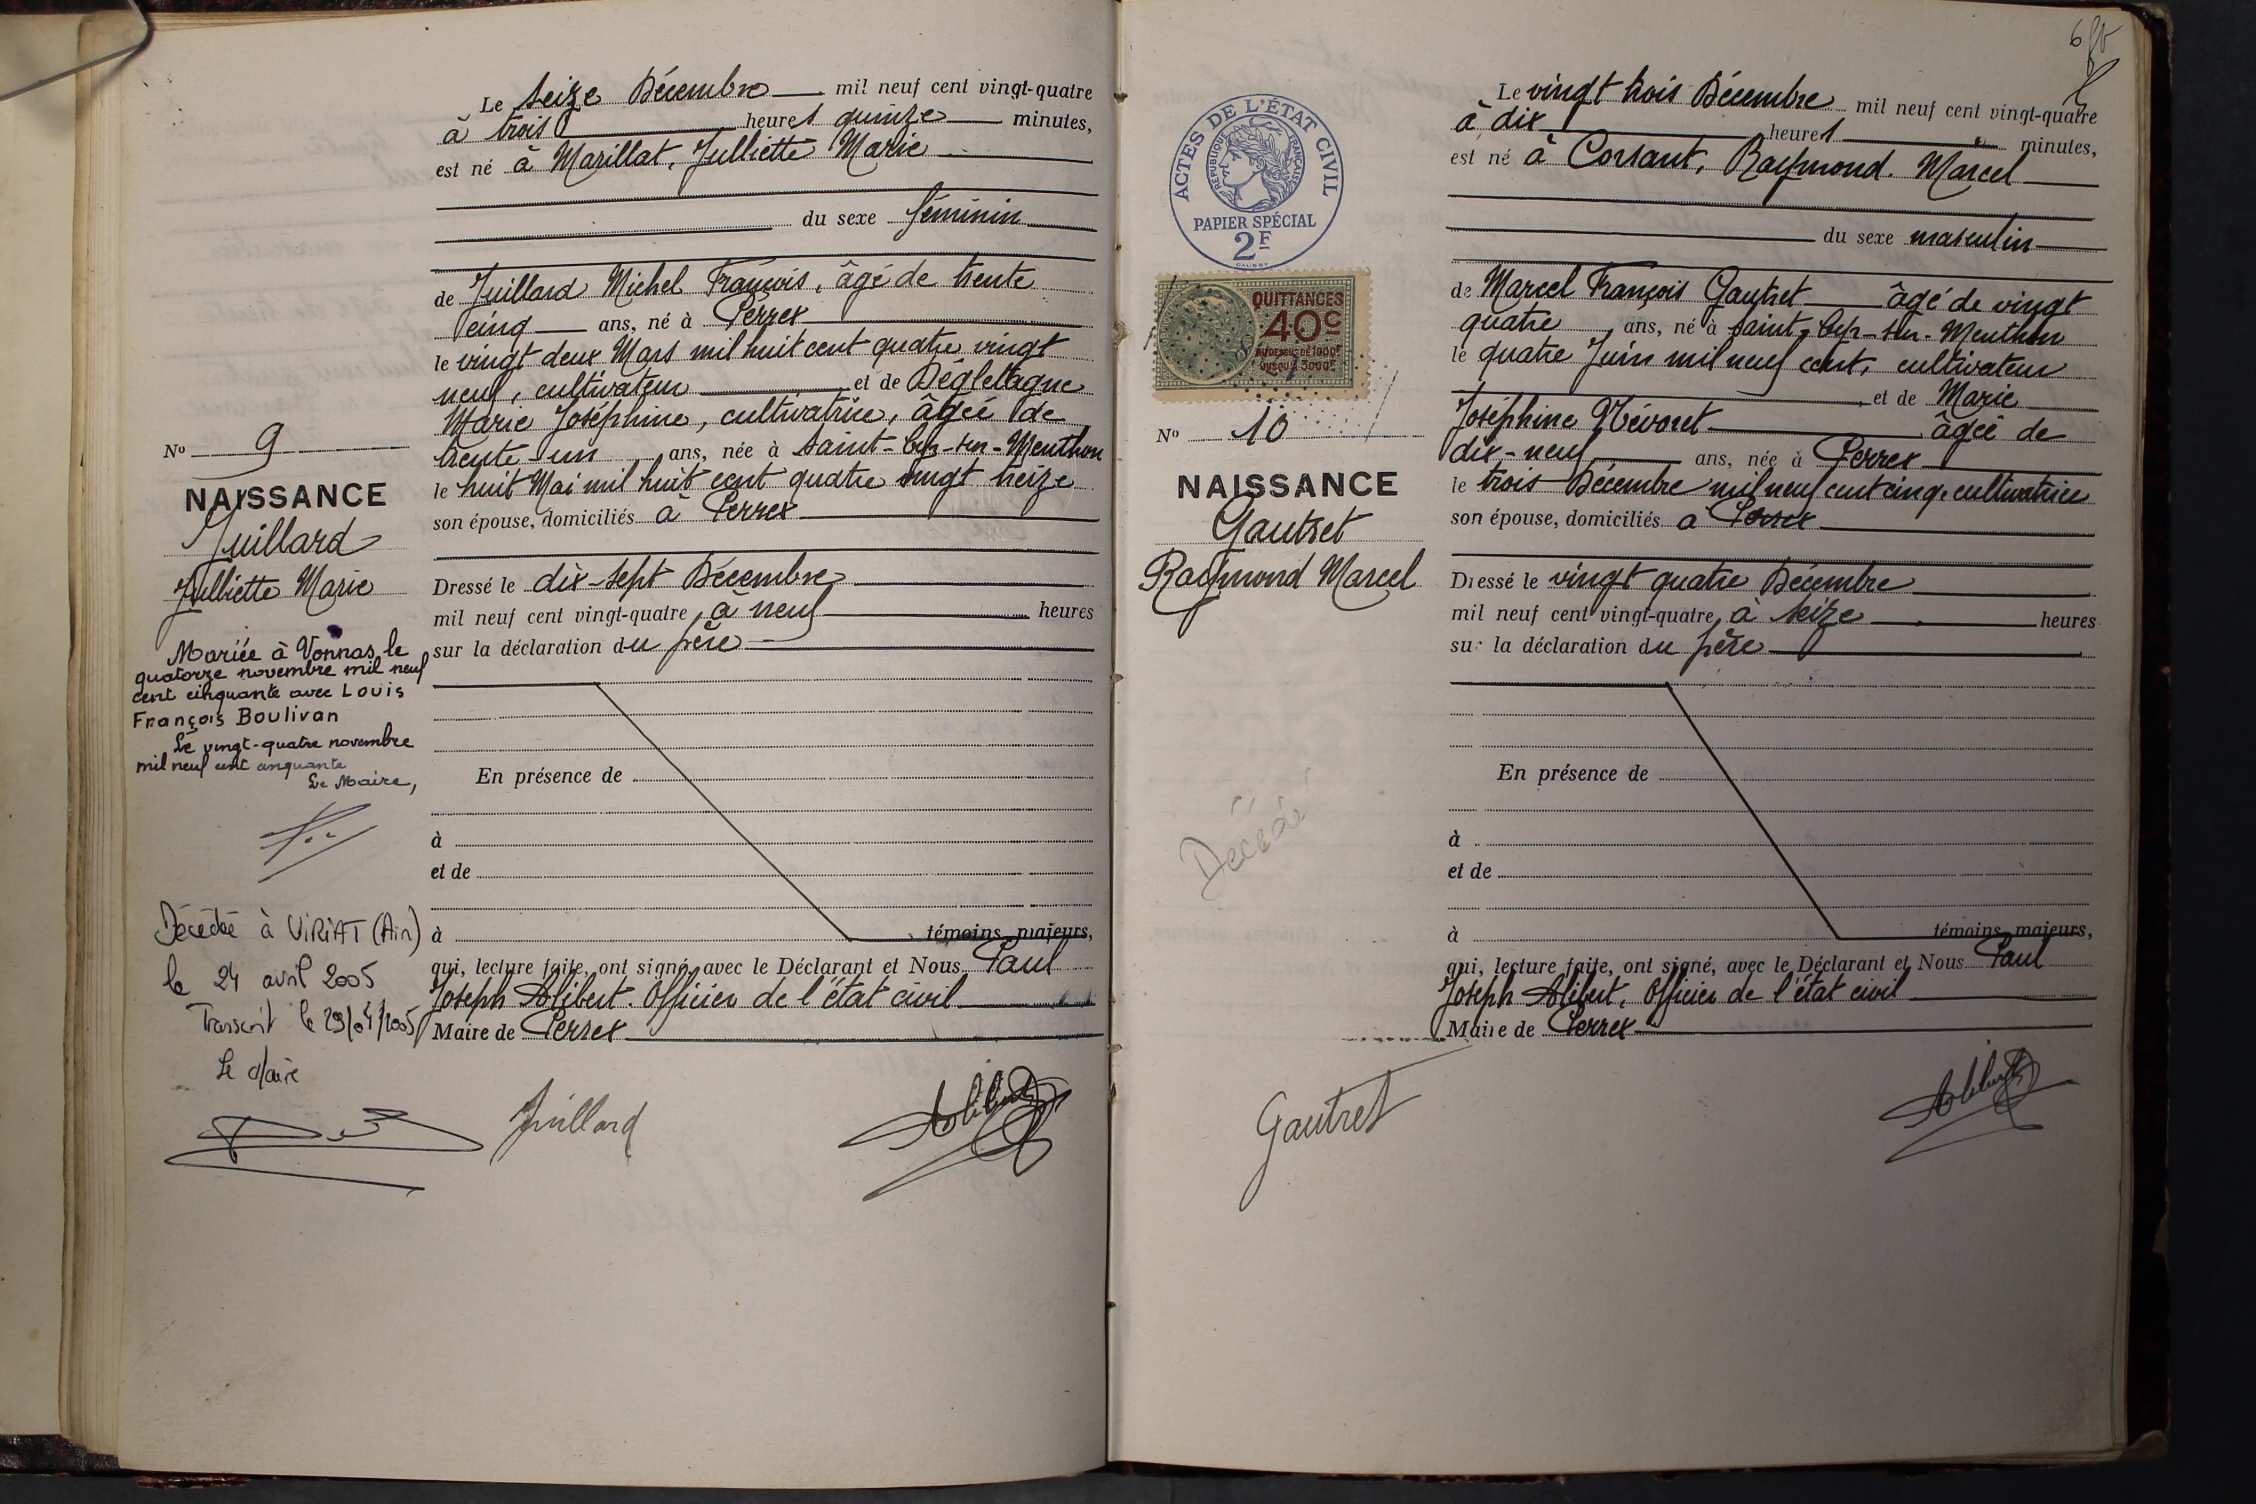 Le seize Décembre mil neuf cent vingt-quatre
à trois heures quinze minutes,
est né à Marillat, Julliette Marie
du sexe féminin
de Juillard Michel François, âgé de trente
cinq ans, né à Perrex
le vingt deux Mars mil huit cent quatre vingt
neuf, cultivateur et de Dégletagne
Marie Joséphine, cultivatrice, âgée de
trente-un ans, née à Saint-Cyr-sur-Menthon
le huit Mai mil huit cent quatre vingt treize
son épouse, domiciliés à Perrex
Dressé le dix-sept Décembre
mil neuf cent vingt-quatre, à neuf heures
sur la déclaration du père
En présence de
à
et de
à témoins majeurs,
qui, lecture faite, ont signé avec le Déclarant et Nous Paul
Joseph Alibert. Officier de l'état civil
Maire de Perrex
Juillard
Alibert
No 9
NAISSANCE
Juillard
Julliette Marie
Mariée à Vonnas le
quatorze novembre mil neuf
cent cinquante avec Louis
François Boulivan
Le vingt-quatre novembre
mil neuf cent cinquante
Le Maire,
Décédée à VIRIAT (Ain)
le 24 avril 2005
Transcrit le 29/04/2005
Le Maire
6
ACTES DE L'ÉTAT CIVIL
RÉPUBLIQUE FRANÇAISE
PAPIER SPÉCIAL
2F
QUITTANCES
40c
AU DESSUS DE 1000F
JUSQU'A 3000F
No 10
NAISSANCE
Gautret
Raymond Marcel
Décédé
Le vingt trois Décembre mil neuf cent vingt-quatre
à dix heures minutes,
est né à Corsant, Raymond. Marcel
du sexe masculin
de Marcel François Gautret âgé de vingt
quatre ans, né à Saint-Cyr-sur-Menthon
le quatre Juin mil neuf cent, cultivateur
et de Marie
Joséphine Névoret âgée de
dix-neuf ans, née à Perrex
le trois Décembre mil neuf cent cinq, cultivatrice
son épouse, domiciliés à Perrex
Dressé le vingt quatre Décembre
mil neuf cent vingt-quatre, à seize heures
sur la déclaration du père
En présence de
à
et de
à témoins majeurs,
qui, lecture faite, ont signé, avec le Déclarant et Nous Paul
Joseph Alibert. Officier de l'état civil
Maire de Perrex
Gautret
Alibert